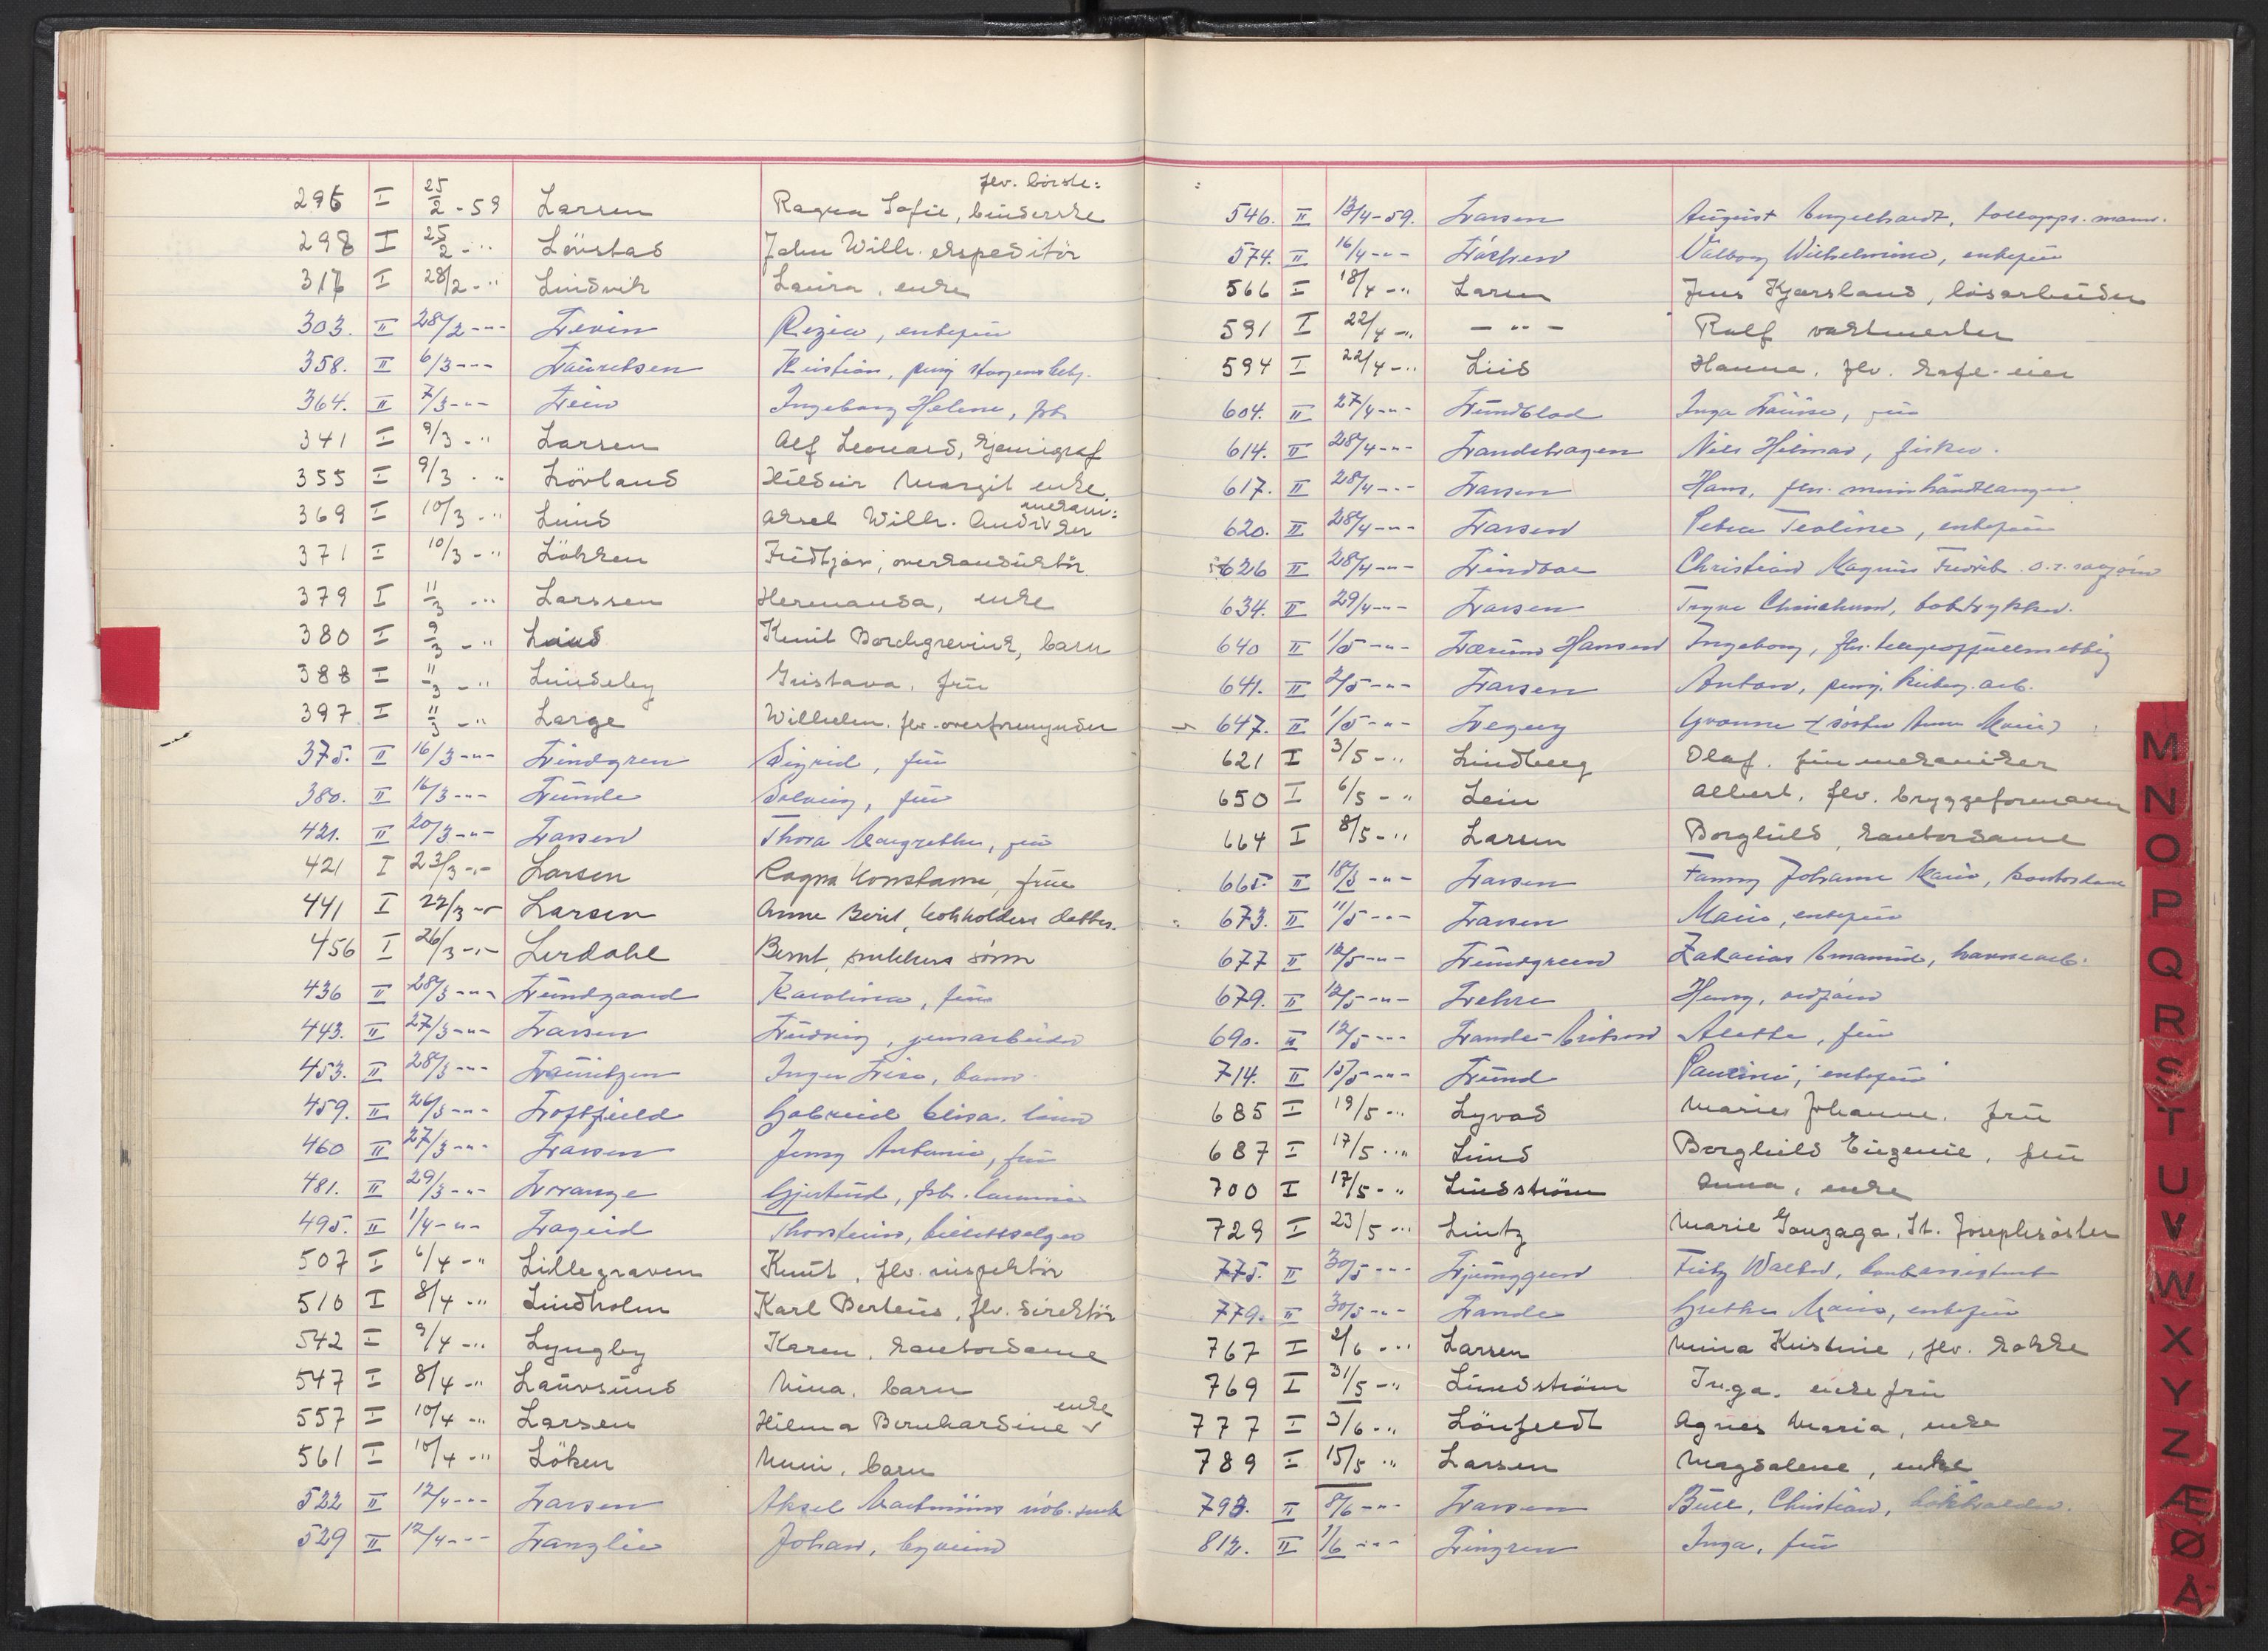 296 I 25/2 - 59 Larsen Ragna Sofie, flv. börste= binderske
298 I 25/2 - " Lövstad John Wilh. ekspeditör
316 I 28/2 - " Lindvik Laura, enke
303. II 28/2 - " - Levin Rezia, enkefru
358. II 6/3 - " - Lauritsen Kristian, pensj.
364. II 7/3 - " - Lein Ingeborg Helene, frk.
341 I 9/3 - " Larsen Alf Leonard, kjemigraf
355 I 9/3 - " Lövland Hildur Margit enke
369 I 10/3 - " Lund Aksel Wilh. Andr. mekani= ker
371 I 10/3 - " Lökken Fridtjov, overkonduktör
379 I 11/3 - " Larssen Hermanda, enke
380 I 9/3 - " Lund Knut Borchgrevink, barn
388 I 11/3 - " Lindeby Gustava, fru
397 I 11/3 - " Large Wilhelm, flv. overformynder
375. II 16/3 - " - Lindgren Sigrid, fru
380. II 16/3 - " - Lunde Solveig, fru
421. II 20/3 - " - Larsen Thora Margrethe, fru
421 I 23/3 - " - Larsen Ragna Konstanse, frue
441 I 22/3 - " Larsen Anne Berit, bokholders datter.
456 I 26/3 - " - Lerdahl Bernt, snekkers sönn
436 II 28/3 - " - Lundgaard Karoline, frue
443. II 27/3 - " - Larsen Ludvig, jernarbeider
453. II 28/3 - " - Lauritzen Inger Lise, barn
459. II 26/3 - " - Loftfield Gabriel
460 II 27/3 - " - Larsen Jenny Antonie, fru
481. II 29/3 - " - Lorange Gjertrud, frk.
495. II 1/4 - " - Lageid Thorstein, billettselger
507 I 6/4 - " Lillegraven Knut, flv. inspektör
510 I 8/4 - " Lindholm Karl Berteus, flv. direktör
542 I 9/4 - " Lyngby Karen, kontordame
547 I 8/4 - " Laursund Nina, barn
557 I 10/4 - " Larsen Hilma Bernhardine enke
561 I 10/4 - " Löken barn
522 II 12/4 - " - Larsen Aksel Martinius
529 II 12/4 - " - Langlie Johan,
546. II 13/4 - 59. Larsen August Engelhardt,
574. II 16/4 - " - Valborg Wilhelmine, enkefru
566 I 18/4 - " Larsen Jens Kjørsland, lösarbeider
591 I 22/4 - " - " - Rolf vaktmester
594 I 22/4 - " Liis Hanna, flv. kafe-eier
604. II 27/4 - " - Lundblad Inga Louise, fru
614. II 28/4 - " - Landehagen Nils Hilmar, fisker.
617. II 28/4 - " - Larsen Hans, flv. murhåndlanger
620. II 28/4 - " - Larsen Petra Teoline, enkefru
626 II 28/4 - " - Lindboe Christian Magnus Fredrik o.r. sagförer
634. II 29/4 - " - Larsen Trygve boktrykker.
640 II 1/5 - " - Lærum Hansen Ingeborg, flv. telegraffullmektig
641. II 2/5 - " - Larsen Anton, pensj.
647. II 1/5 - " - Legeng Yvonne (söster Anne Marie)
621 I 3/5 - " Lindberg Olaf, finmekaniker
650 I 6/5 - " Lein Albert, flv. bryggeformann
664 I 8/5 - " Larsen Borghild, kontordame
665. II 18/5 - " - Larsen Fanny Johanne Marie, kontordame
673. II 11/5 - " - Larsen Marie, enkefru
677 II 12/5 - " - Lundgreen Zakarias havnearb.
679. II 12/5 - " - Lehre Henry,
690. II 12/5 - " - Lande-Eriksen Alethe, fru
714. II 15/5 - " - Lund Pauline, enkefru
685 I 19/5 - " Lyvad Marie Johanne, fru
687 I 17/5 - " Lund Borghild Eugenie, fru
700 I 17/5 - " Lindström Anna, enke
729 I 23/5 - " Lintz Marie Gonzaga, St. Josephsöster
775. II 30/5 - " - Ljunggren Fritz Walter, bankassistent
779. II 30/5 - " - Lande Grethe Marie, enkefru
767 I 2/6 - " Larsen Mina Kristine, flv. kokke
769 I 31/5 - " Lindström Inga, enkefru
777 I 3/6 - " Lönfeldt Agnes Maria, enke
789 I 15/5 " Larsen Magdalene, enke
793. II 8/6 - " - Larsen Bull, Christian, bokholder.
812. II 1/6 - " - Lingren Inga, fru
M
N
O
P
Q
R
S
T
U
V
W
X
Y
Z
Æ
Ø
Å